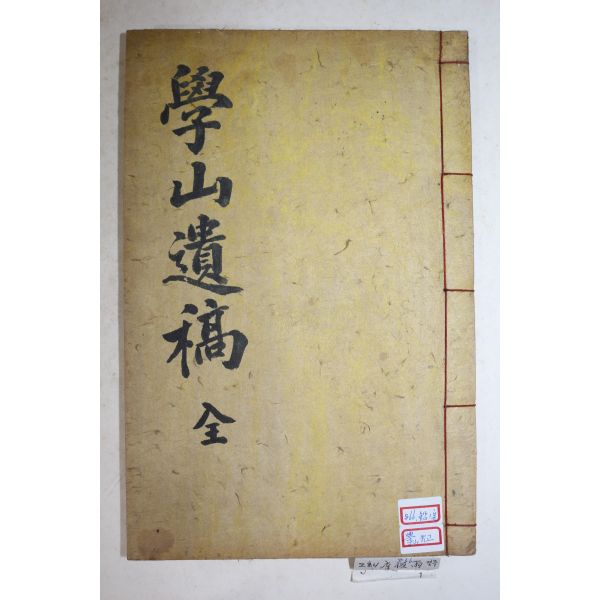 學山遺稿 全